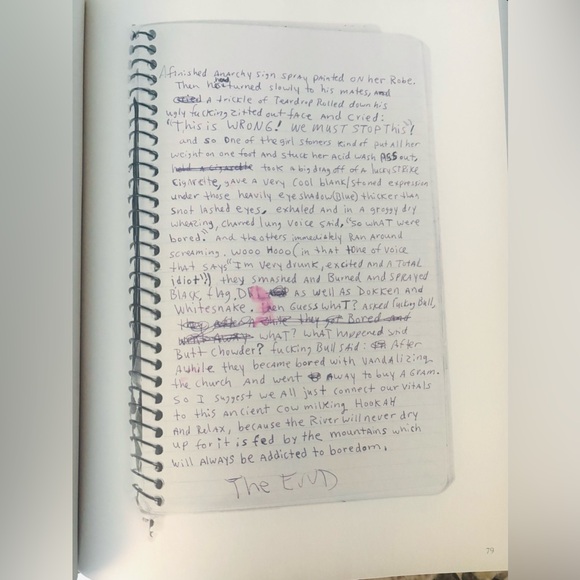 A finished Anarchy sign spray painted ON her Robe.
Then he turned slowly to his mates, and
A trickle of Teardrop Rolled down his
ugly fucking zitted out face and cried:
"This is WRONG! we MUST STOP This"!
and so one of the girl stoners kind of put all her
weight on one foot and stuck her Acid wash ASS out,
took a big drag off of a lucky STRIKE
cigarette, gave a very cool blank/stoned expression
under those heavily eyeshadow (Blue) thicker than
snot lashed eyes, exhaled and in a groggy dry
wheazing, charred lung voice said, "So WHAT were
bored." And the others immediately Ran Around
screaming. wooo Hooo (in that tone of voice
that says "I'm Very drunk, excited and A TOTAL
idiot!) they smashed and Burned and SPRAYED
Black flag, D AS well AS Dokken and
Whitesnake. then Guess WhAT? Asked fucking Bull,
WhAT? WhAT happened said
Butt Chowder? fucking Bull said: After
Awhile they became bored with VANDALizing
the church And went AWAY to buy A GRAM.
So I Suggest we All just connect our VitALS
to this ancient Cow milking HOOKAH
And Relax, because the River will never dry
up for it is fed by the mountains which
will AlwAys be Addicted to boredom.
The EnND
79